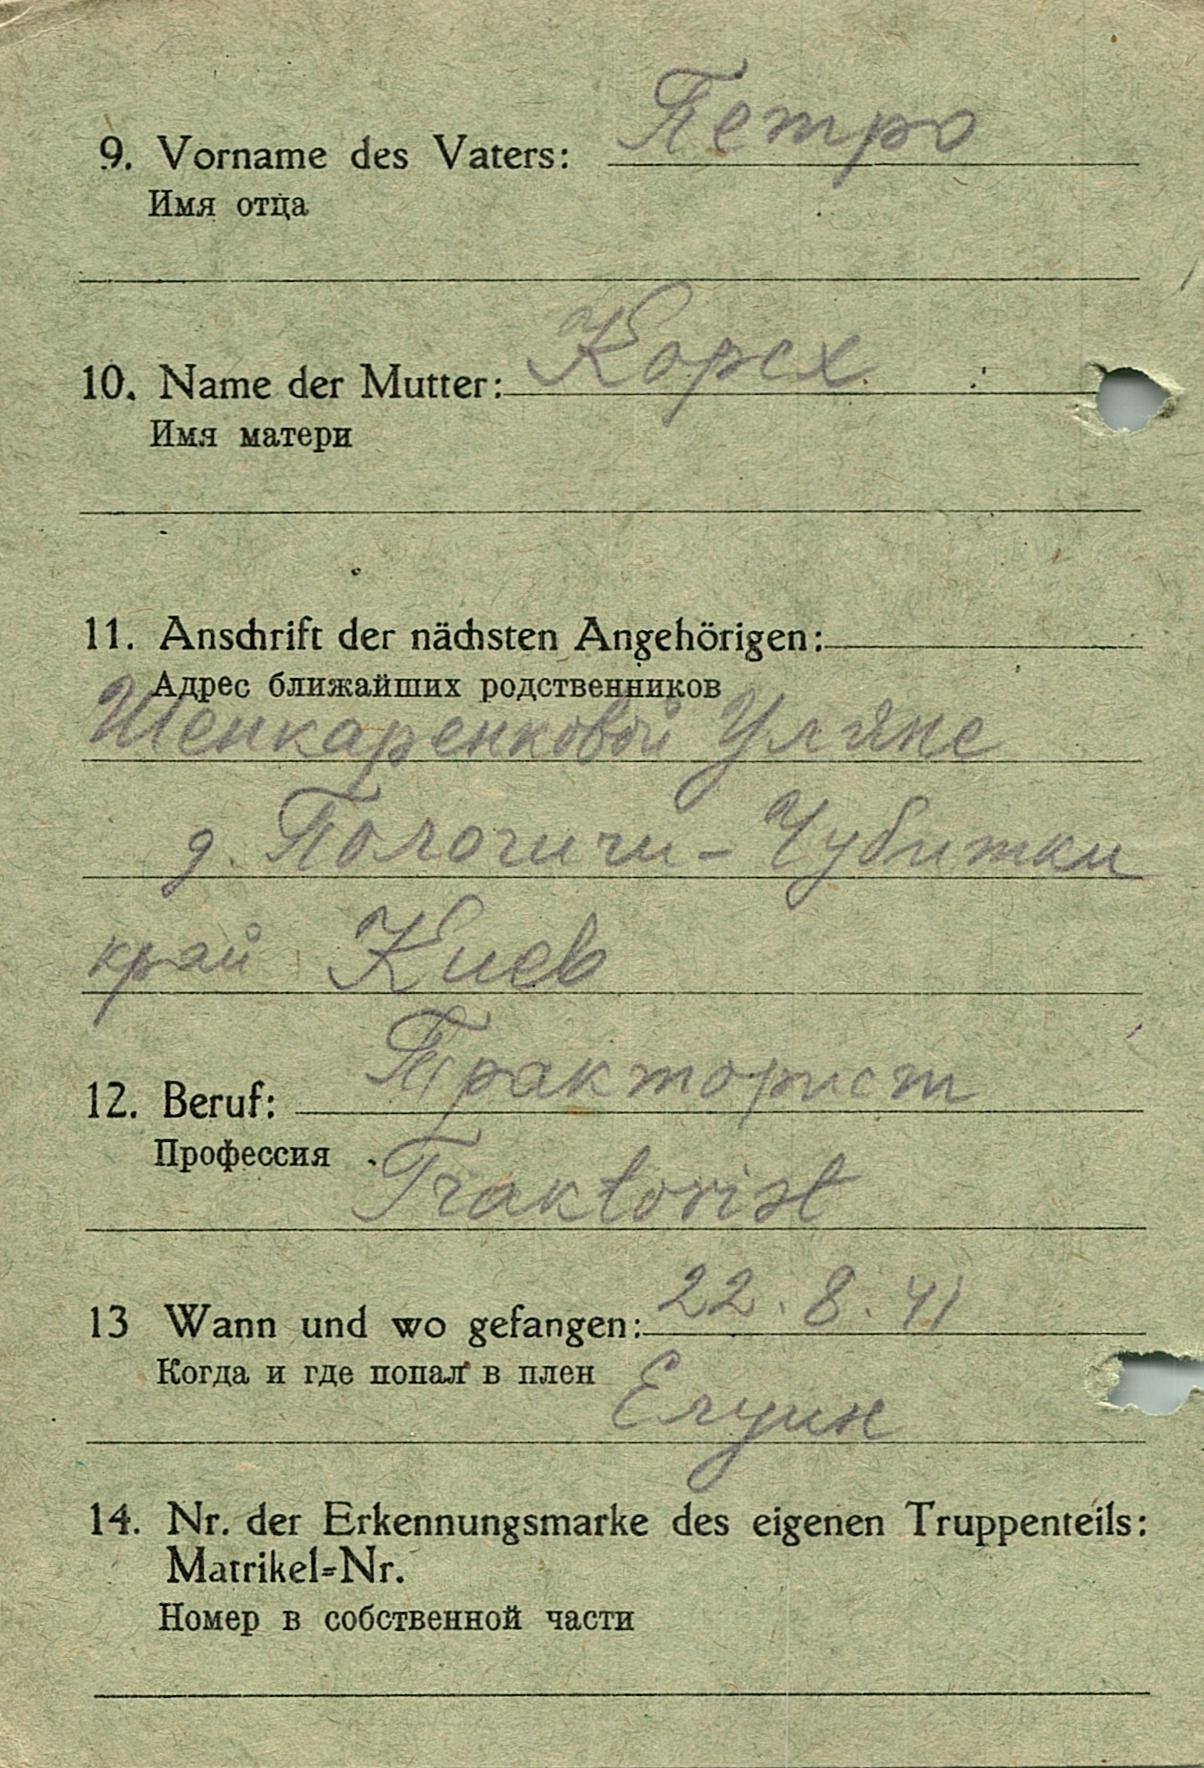 Петро
9. Vorname des Vaters:
Имя отца
Корех
10. Name der Mutter:
Имя матери
11. Anschrift der nächsten Angehörigen:
Адрес ближайших родственников
Шенкаренковой Уляне
д. Пологичи - Чубитки
край Киев
Тракторист
12. Beruf:
Профессия
Traktorist
13 Wann und wo gefangen: 22. 8. 41
Когда и где попал в плен
14. Nr. der Erkennungsmarke des eigenen Truppenteils:
Matrikel=Nr.
Номер в собственной части